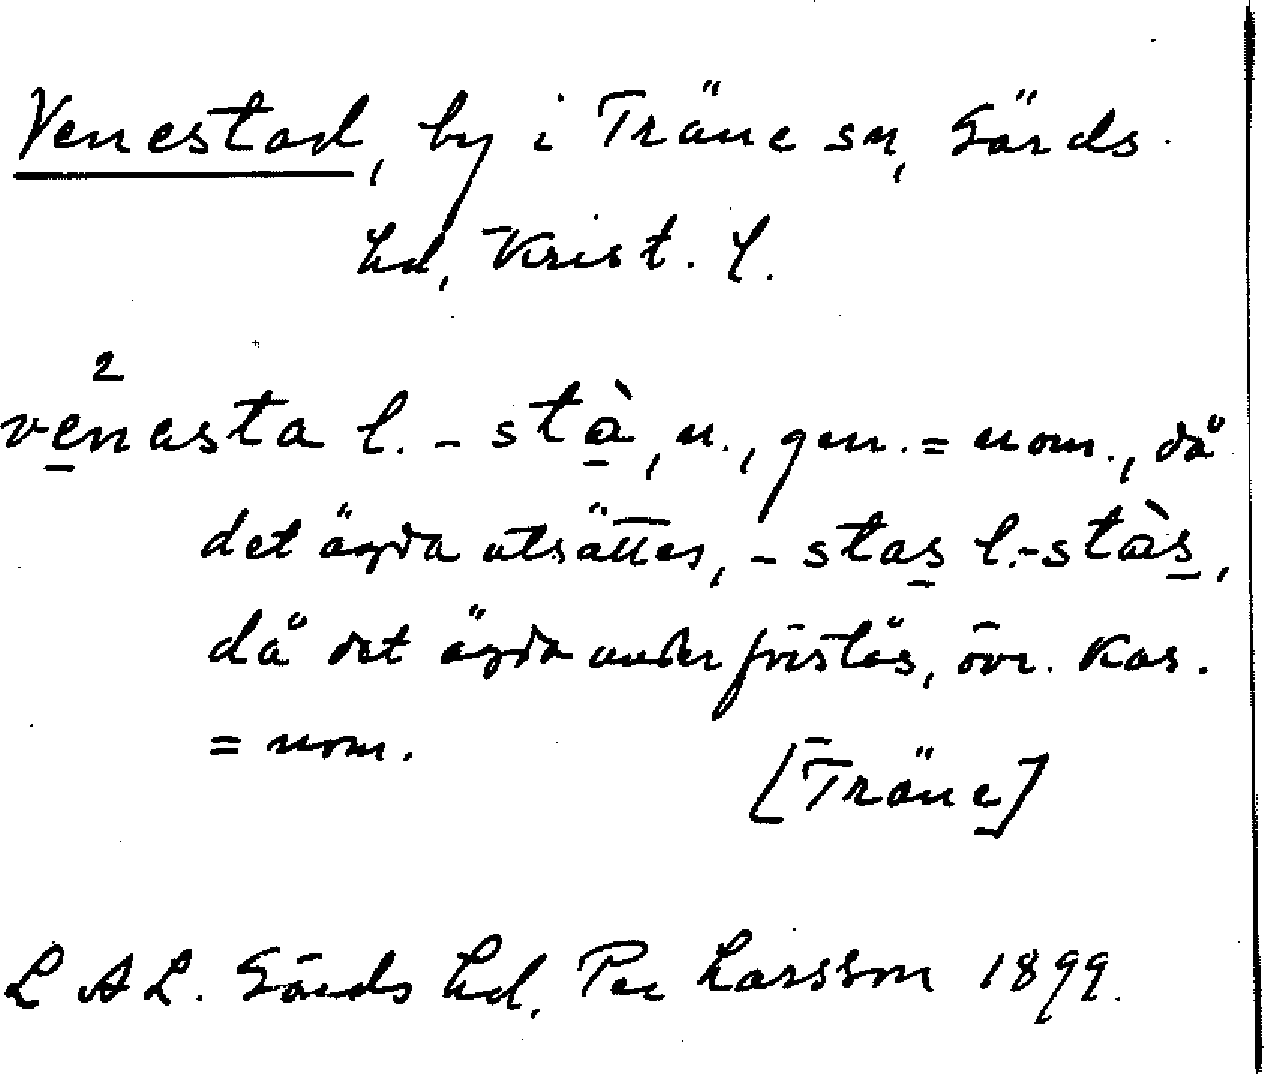 Venestad, by i Träne sn, Gärds
hd, Krist. l.
2
venasta l. -stà, n., gen. = nom., då
det ägda utsättes, -stas l. -stàs,
då det ägda underförstås, övr. kas.
= nom.
[Träne]
LAL. Gärds hd, Per Larsson 1899.